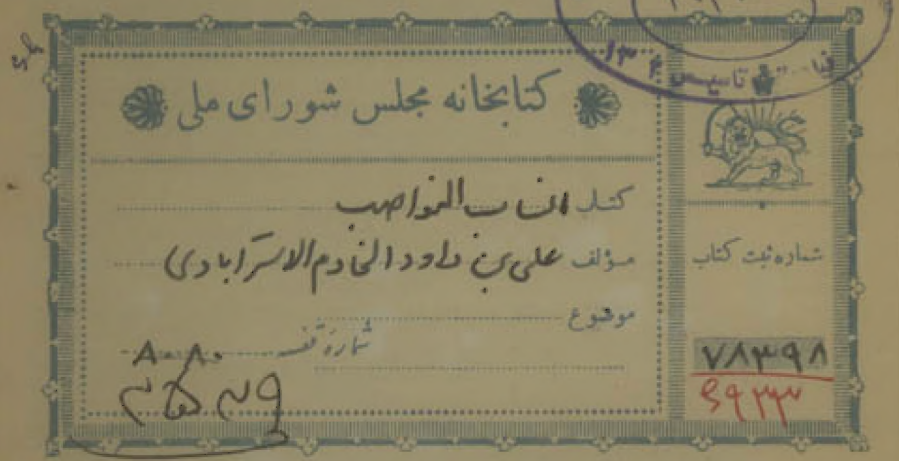 تاسیس ۱۳۰۲
کتابخانه مجلس شورای ملی
کتاب انساب النواصب
مؤلف علی بن داود الخادم الاسترآبادی
موضوع
شماره قفسه ۸۰۸۰
شماره ثبت کتاب
۷۸۳۹۸